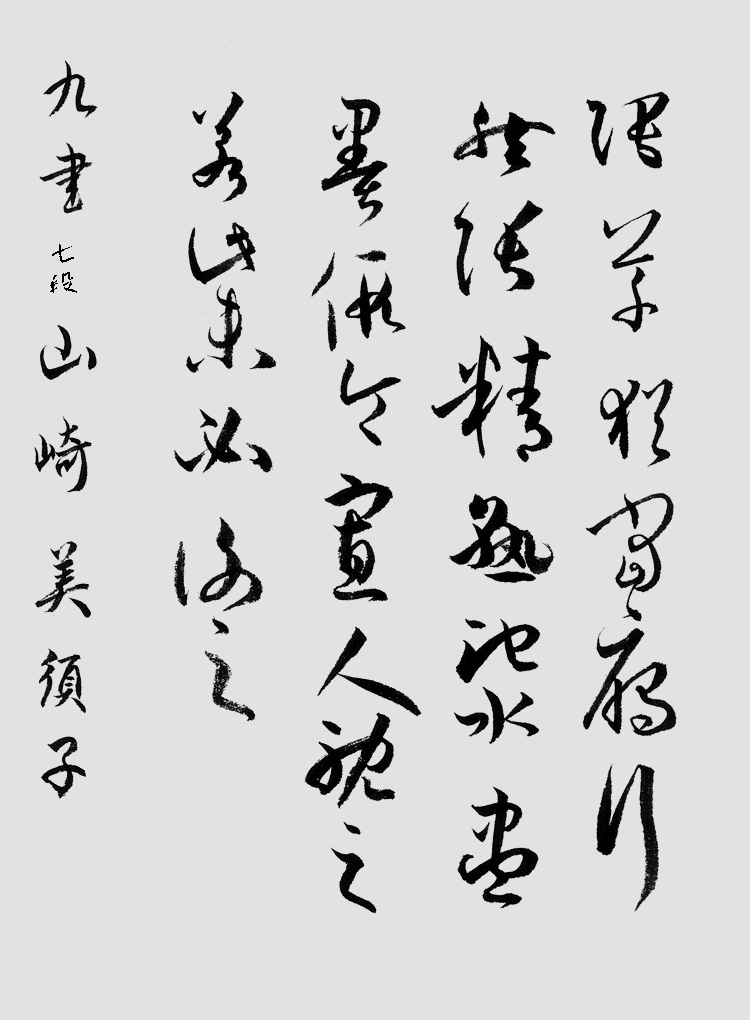 張草猶當鴈行
然張精熟池水盡
墨假令寡人耽之
若此未必謝之
九書 七段 山崎美須子